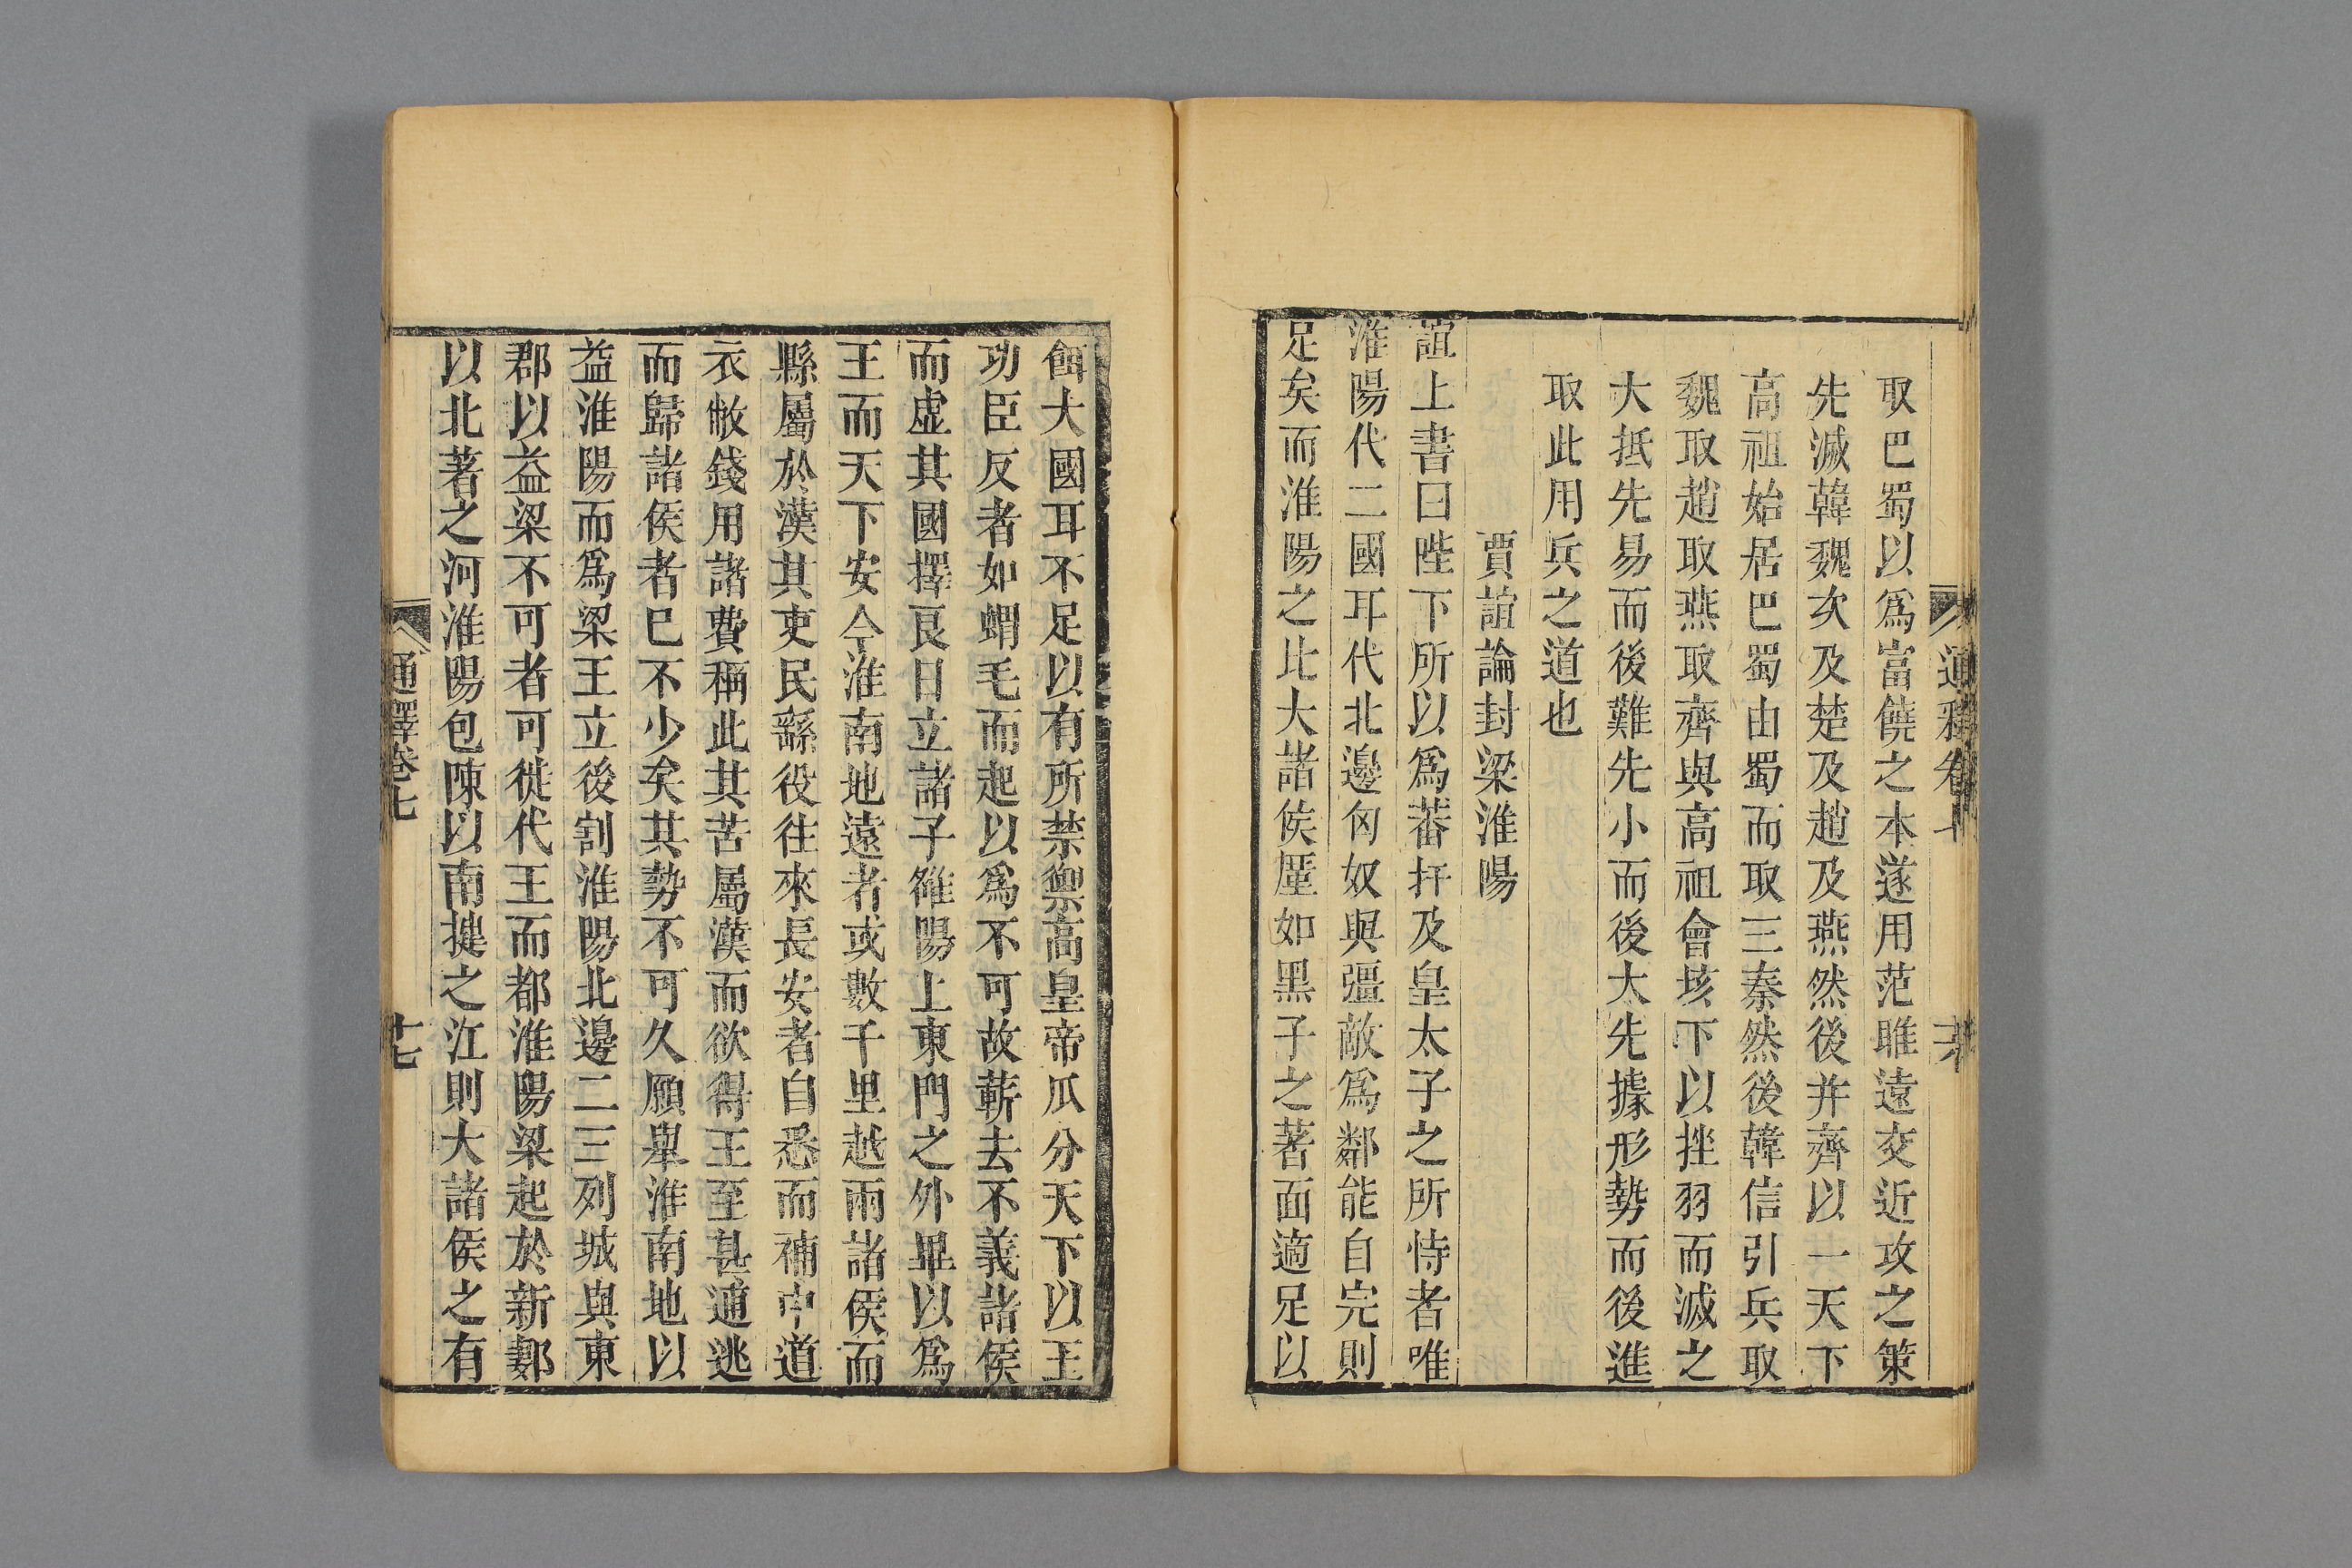 取巴蜀以爲富饒之本遂用范雎遠交近攻之策
先滅韓魏次及楚及趙及燕然後并齊以一天下
高祖始居巴蜀由蜀而取三秦然後韓信引兵取
魏取趙取燕取齊與高祖會垓下以挫羽而滅之
大抵先易而後難先小而後大先據形勢而後進
取此用兵之道也
賈誼論封梁淮陽
誼上書曰陛下所以爲蕃扞及皇太子之所恃者唯
淮陽代二國耳代北邊匈奴與彊敵爲鄰能自完則
足矣而淮陽之比大諸侯厪如黑子之著面適足以
餌大國耳不足以有所禁禦高皇帝瓜分天下以王
功臣反者如蝟毛而起以爲不可故蔪去不義諸侯
而虛其國擇良日立諸子雒陽上東門之外畢以爲
王而天下安今淮南地遠者或數千里越兩諸侯而
縣屬於漢其吏民繇役往來長安者自悉而補中道
衣敝錢用諸費稱此其苦屬漢而欲得王至甚逋逃
而歸諸侯者已不少矣其勢不可久願舉淮南地以
益淮陽而爲梁王立後割淮陽北邊二三列城與東
郡以益梁不可者可徙代王而都淮陽梁起於新郪
以北著之河淮陽包陳以南揵之江則大諸侯之有
通釋卷七
十七